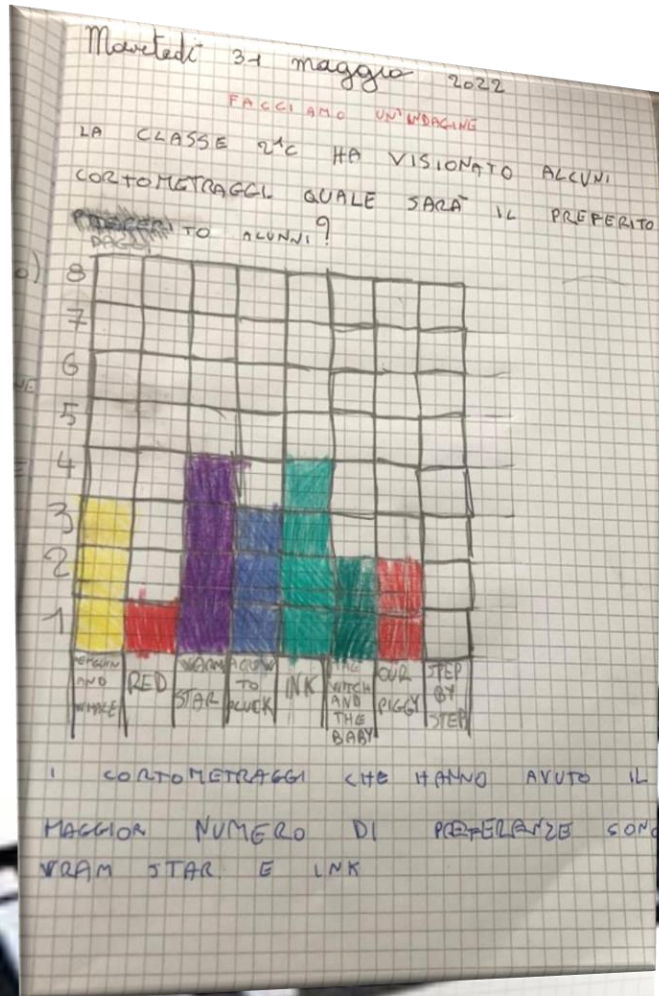 Martedì 31 maggio 2022
FACCIAMO UN'INDAGINE
LA CLASSE 2^C HA VISIONATO ALCUNI
CORTOMETRAGGI QUALE SARÀ IL PREFERITO
TO ALUNNI?
8
7
6
5
4
3
2
1
PENGUIN AND WHALE
RED
WARM STAR
TO PLUCK
INK
THE WITCH AND THE BABY
OUR PIGGY
STEP BY STEP
I CORTOMETRAGGI CHE HANNO AVUTO IL
MAGGIOR NUMERO DI PREFERENZE SONO
WRAM STAR E INK